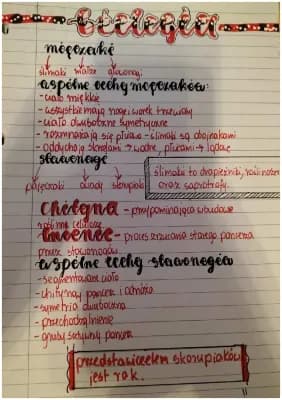 biologia
mięczaki
ślimaki małże głowonogi
wspólne cechy mięczaków:
- ciało miękkie
- wszystkie mają nogę i worek trzewiowy
- ciało dwubocznie symetryczne
- rozmnażają się płciowo - ślimaki są obojnakami
- oddychają skrzelami → wodne, płucami → lądowe
stawonogi
pajęczaki owady skorupiaki
ślimaki to drapieżniki, roślinożerne
oraz saprotrofy.
Chityna - przypominająca w budowie
Linienie - proces zrzucania starego pancerza
przez stawonogi
wspólne cechy stawonogów
- segmentowane ciało
- chitynowy pancerz i odnóża
- symetria dwuboczna
- gruby sztywny pancerz
przedstawicielem skorupiaków
jest rak.